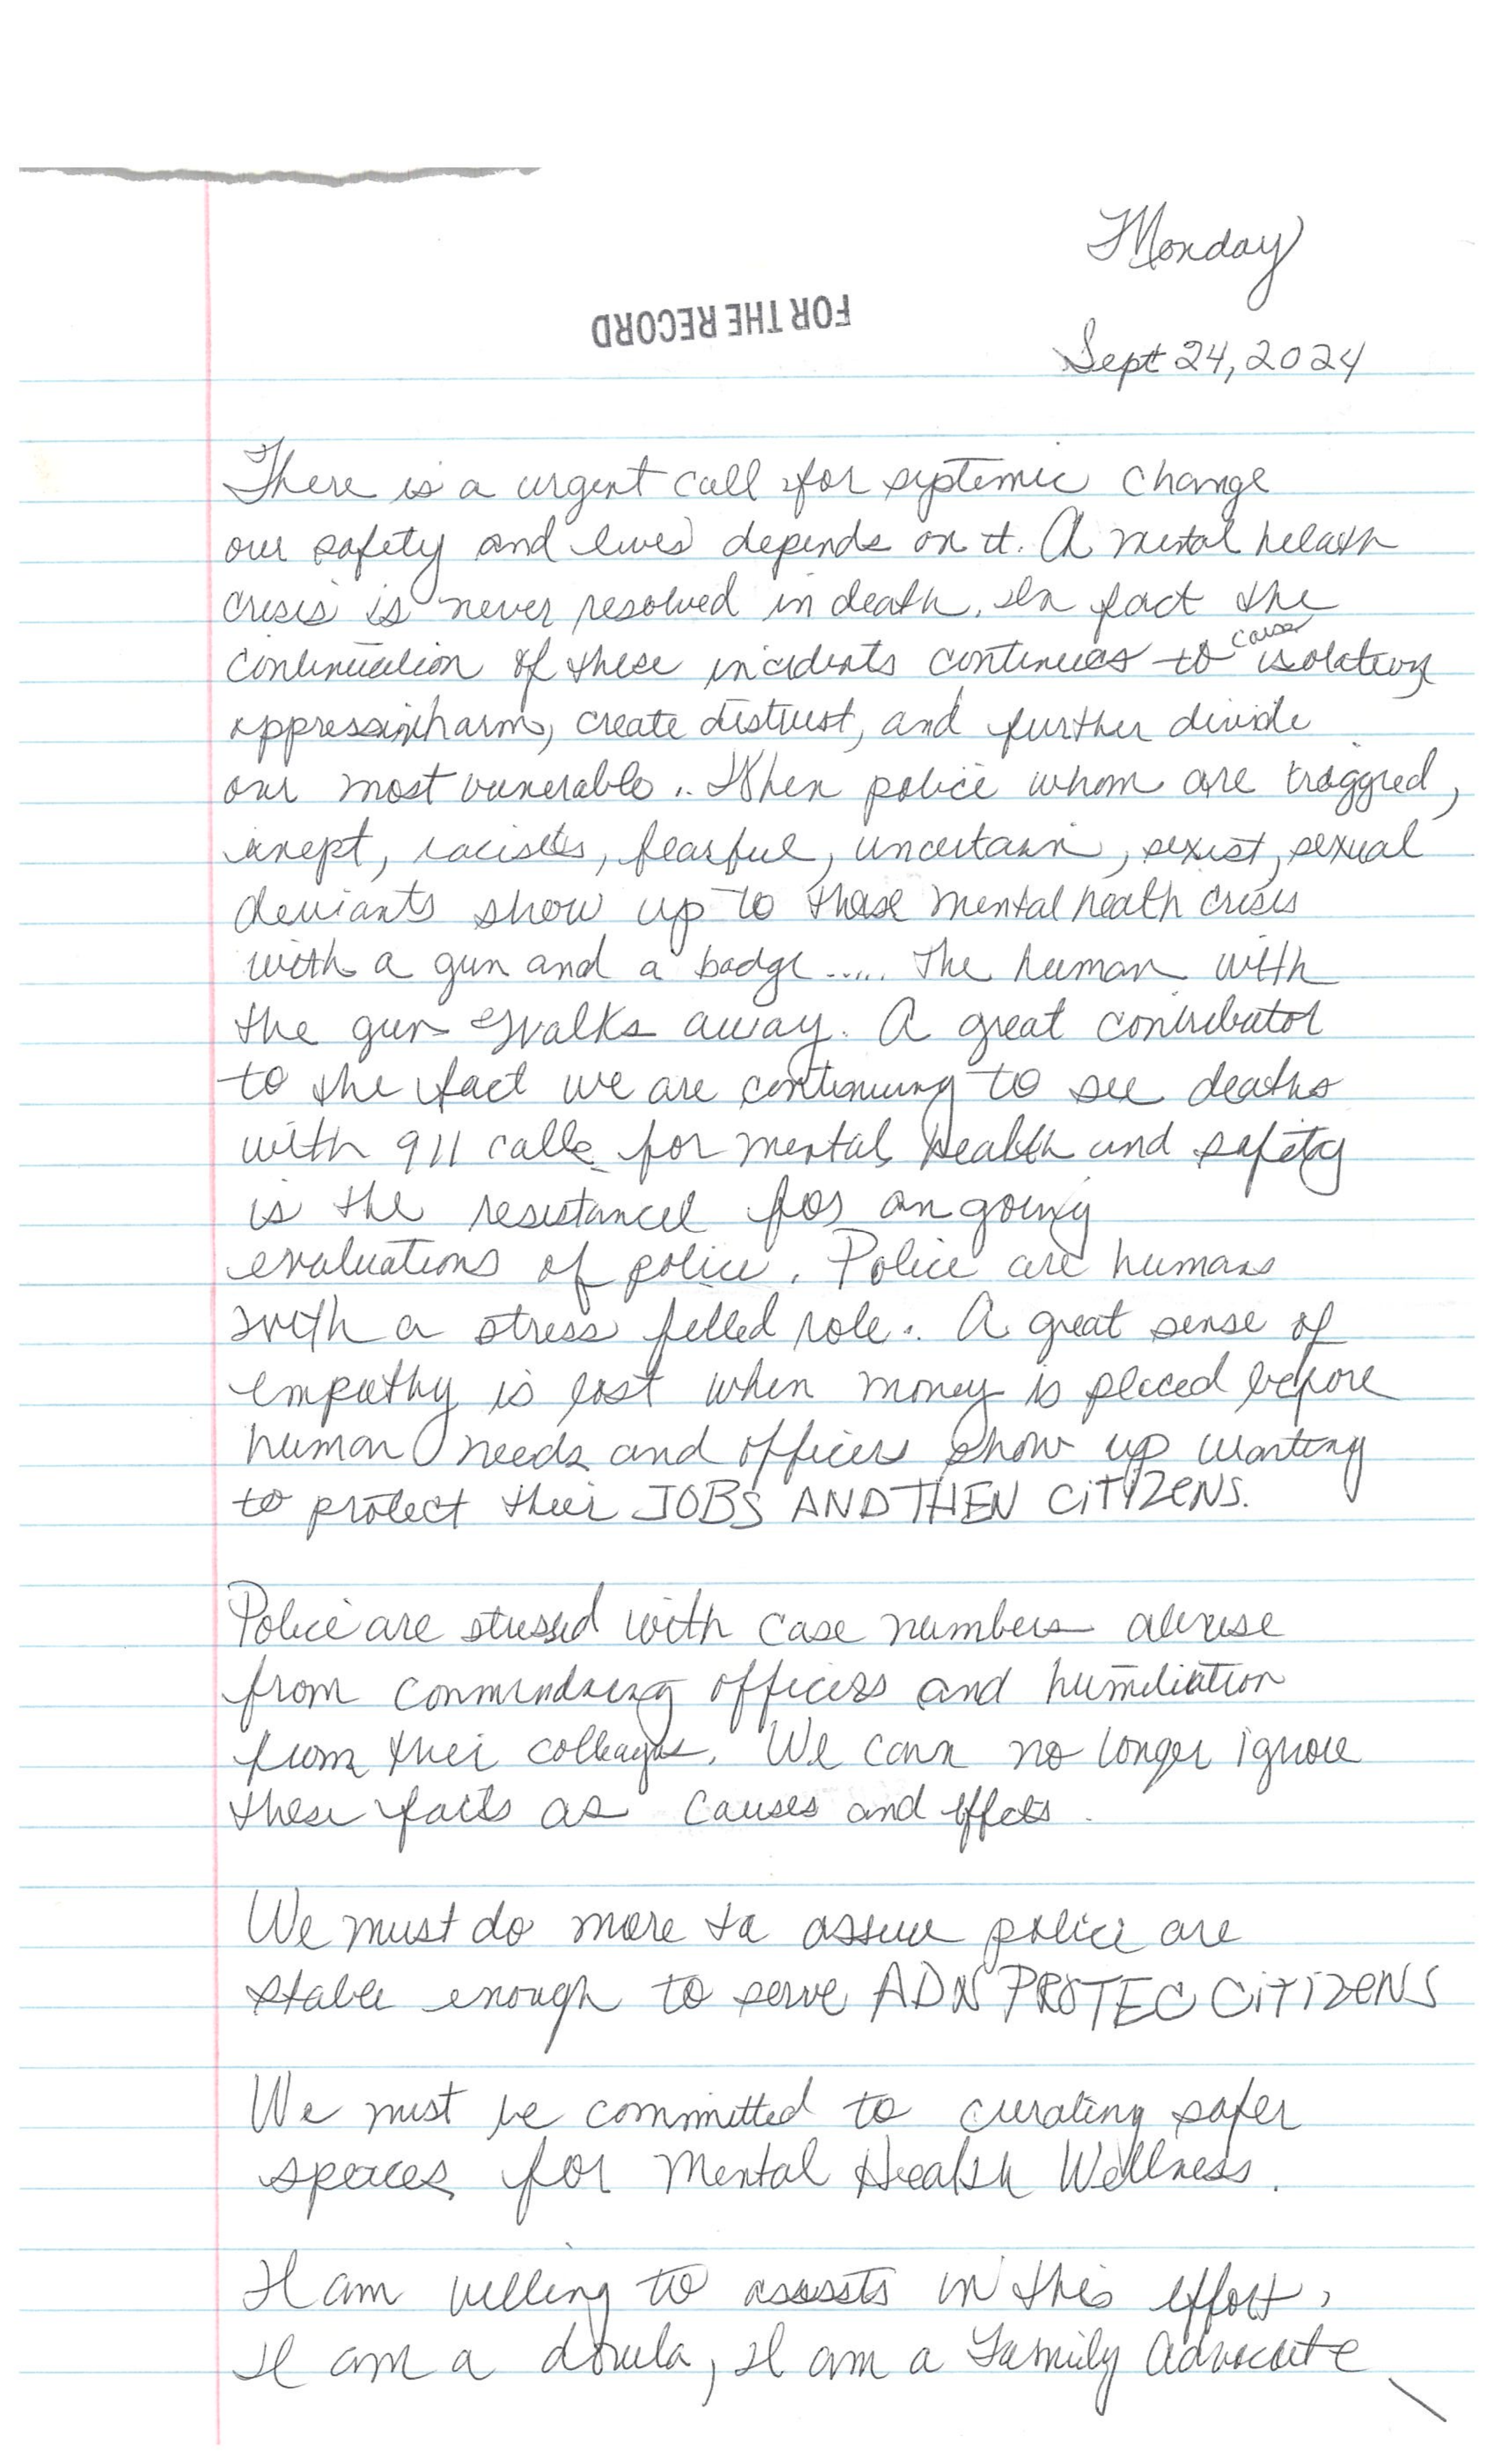 Monday
FOR THE RECORD
Sept 24, 2024
There is a urgent call for systemic change
our safety and lives depends on it. A mental helath
crisis is never resolved in death. In fact the
continuation of these incidents continues to cause isolation
oppression harm, create distrust, and further divide
our most vunerable.. When police whom are triggred,
inept, racists, fearful, uncertain, sexist, sexual
deviants show up to these mental heath crisis
with a gun and a badge..... The human with
the gun walks away. A great contributor
to the fact we are continuing to see deaths
with 911 calls for mental health and safety
is the resistance for on going
evaluations of police. Police are humans
with a stress filled role. A great sense of
empathy is lost when money is placed before
human needs and officers show up wanting
to protect their JOBS AND THEN CiTIZENS.
Police are stressed with case numbers abuse
from commindning officers and humiliation
from thei colleagues. We can no longer ignore
these facts as causes and effects.
We must do more to assure police are
stable enough to serve ADN PROTEC CiTiZENS
We must be committed to curating safer
spaces for Mental Health Wellness.
I am willing to assists in this effort,
I am a doula, I am a Family Advocate